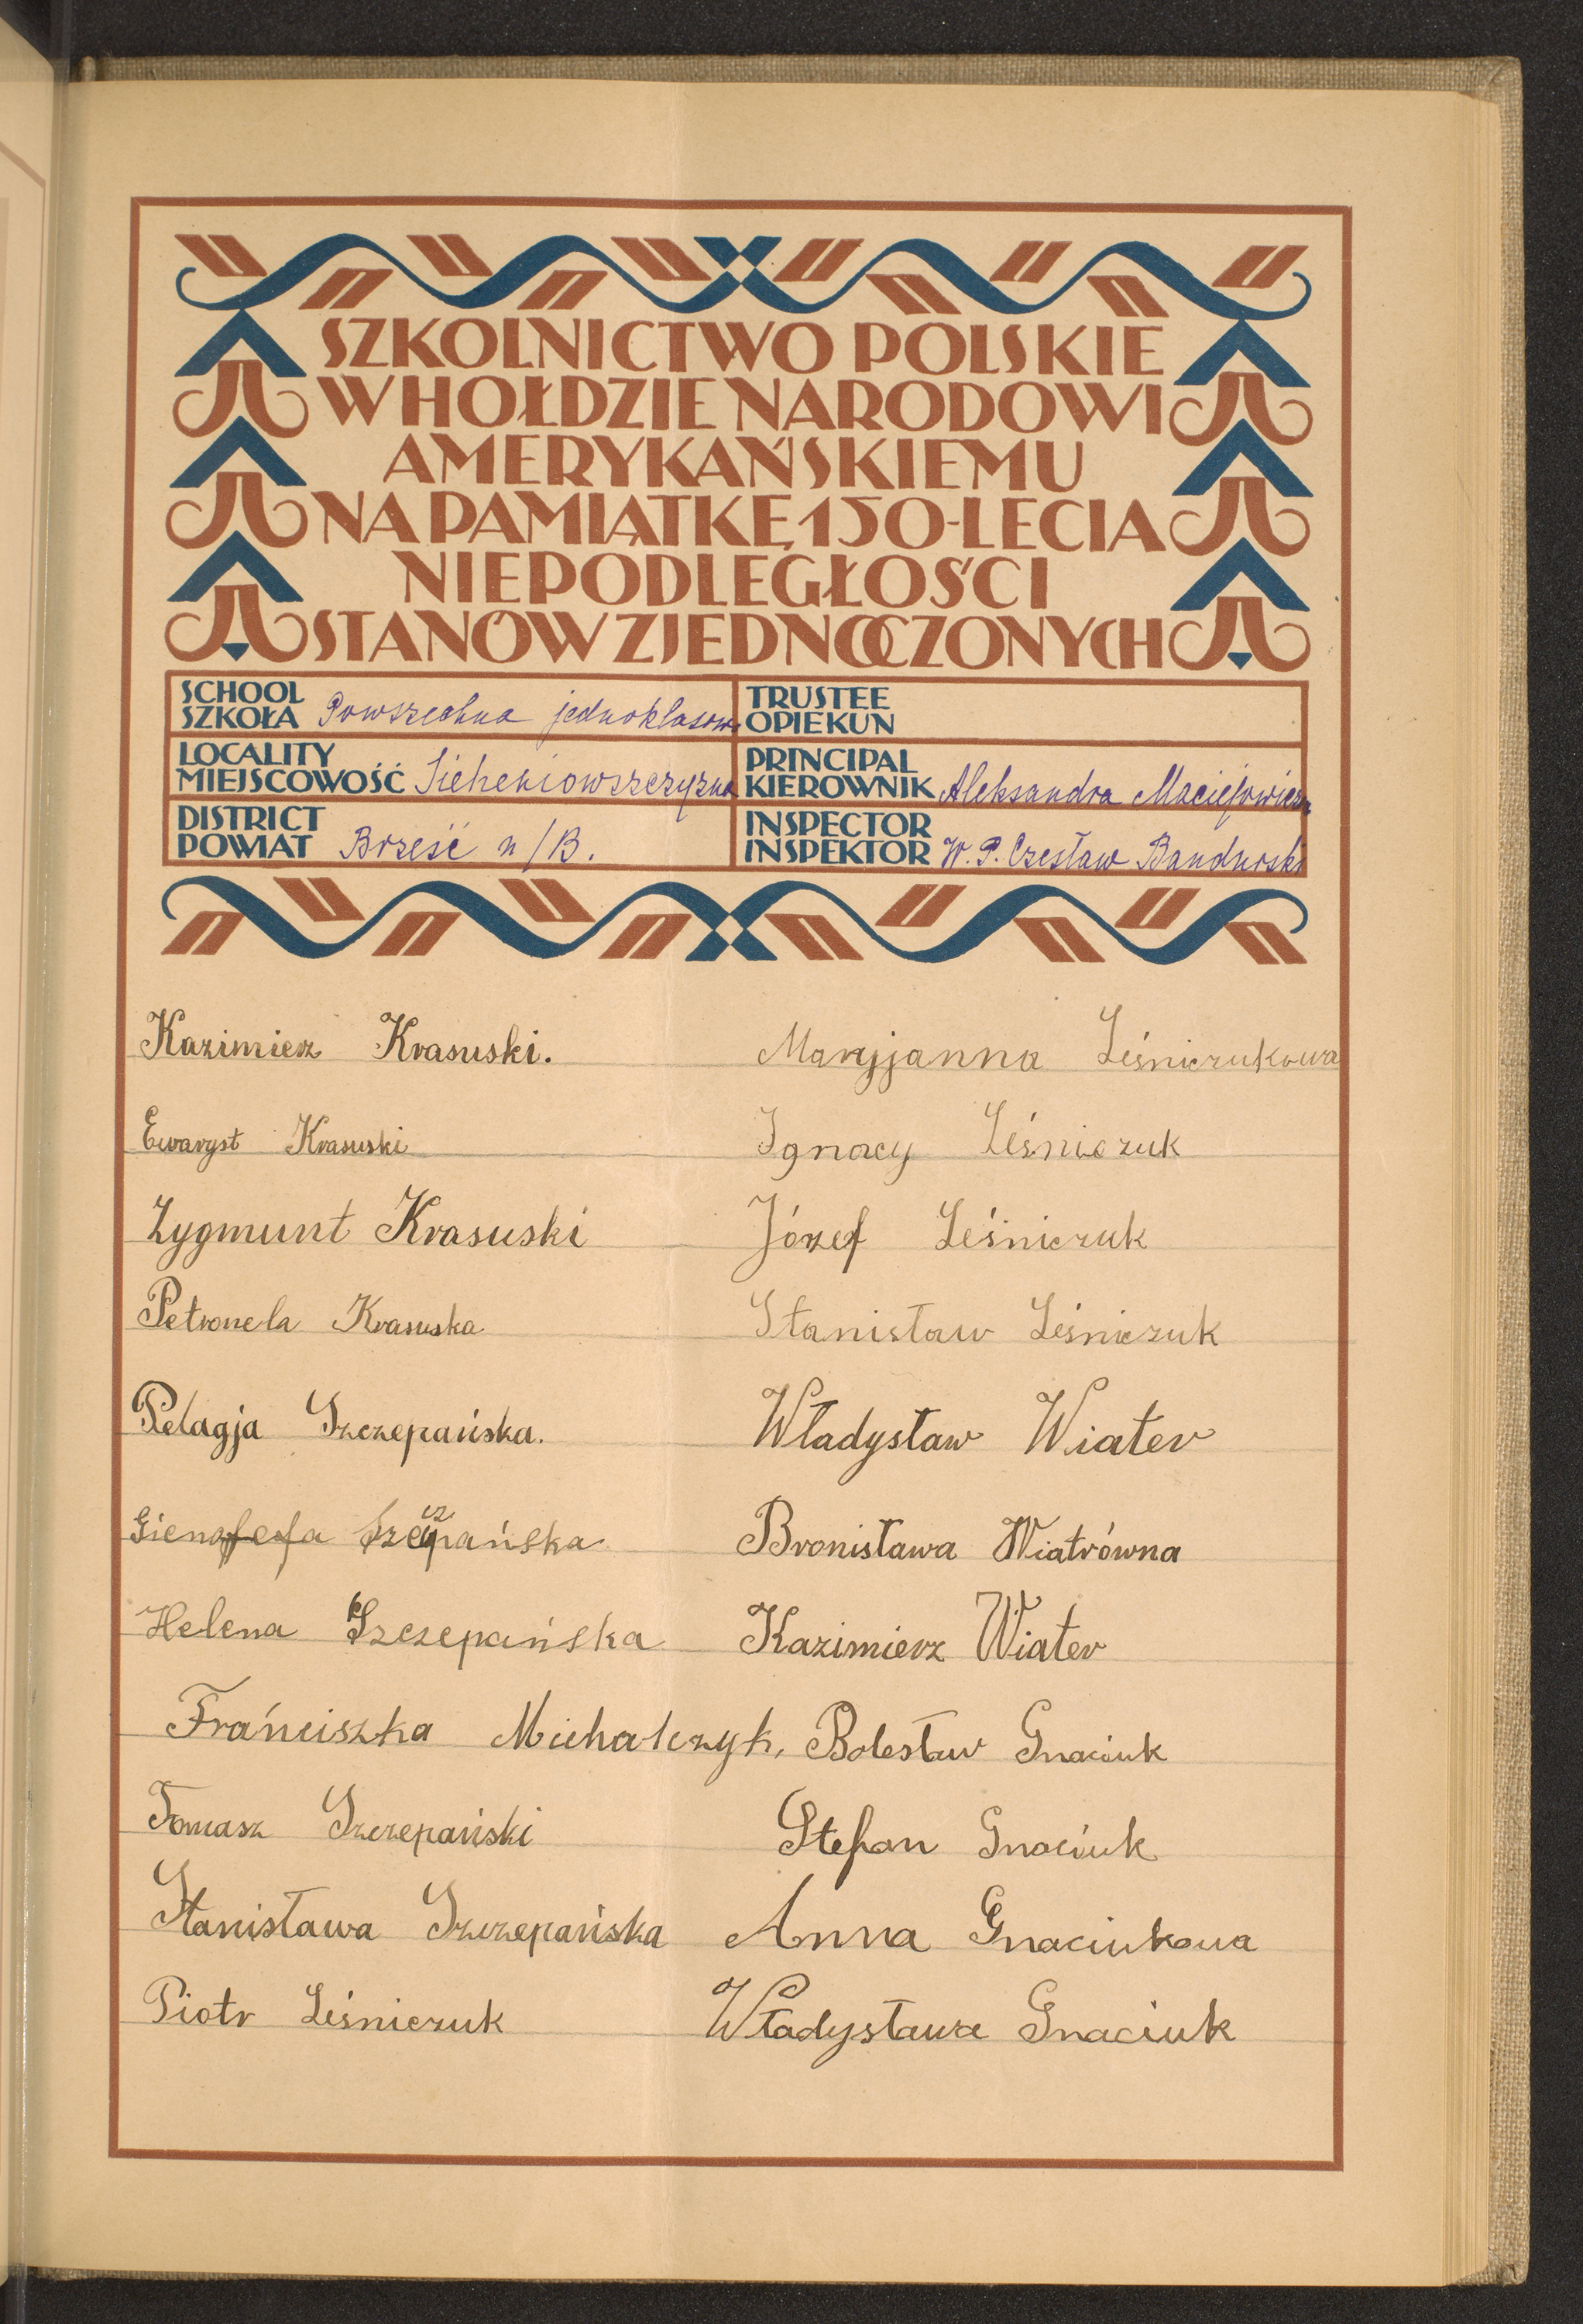 SZKOLNICTWO POLSKIE
W HOŁDZIE NARODOWI
AMERYKAŃSKIEMU
NA PAMIĄTKĘ 150-LECIA
NIEPODLEGŁOŚCI
STANÓW ZJEDNOCZONYCH
SCHOOL
SZKOŁA Powszechna jednoklasowa
LOCALITY
MIEJSCOWOŚĆ Sieheniowszczyzna
DISTRICT
POWIAT Brześć n/B.
TRUSTEE
OPIEKUN
PRINCIPAL
KIEROWNIK Aleksandra Maciejowicz
INSPECTOR
INSPEKTOR W. P. Czesław Bandurski
Kazimierz Krasuski.
Ewaryst Krasuski
Zygmunt Krasuski
Petronela Krasuska
Pelagja Szczepańska.
Gienofefa Szczepańska
Helena Szczepańska
Frańciszka Michalczyk,
Tomasz Szczepański
Stanisława Szczepańska
Piotr Leśniczuk
Maryjanna Leśniczukowa
Ignacy Leśniczuk
Józef Leśniczuk
Stanisław Leśniczuk
Władysław Wiater
Bronisława Wiatrówna
Kazimierz Wiater
Bolesław Gnaciuk
Stefan Gnaciuk
Anna Gnaciukowa
Władysława Gnaciuk